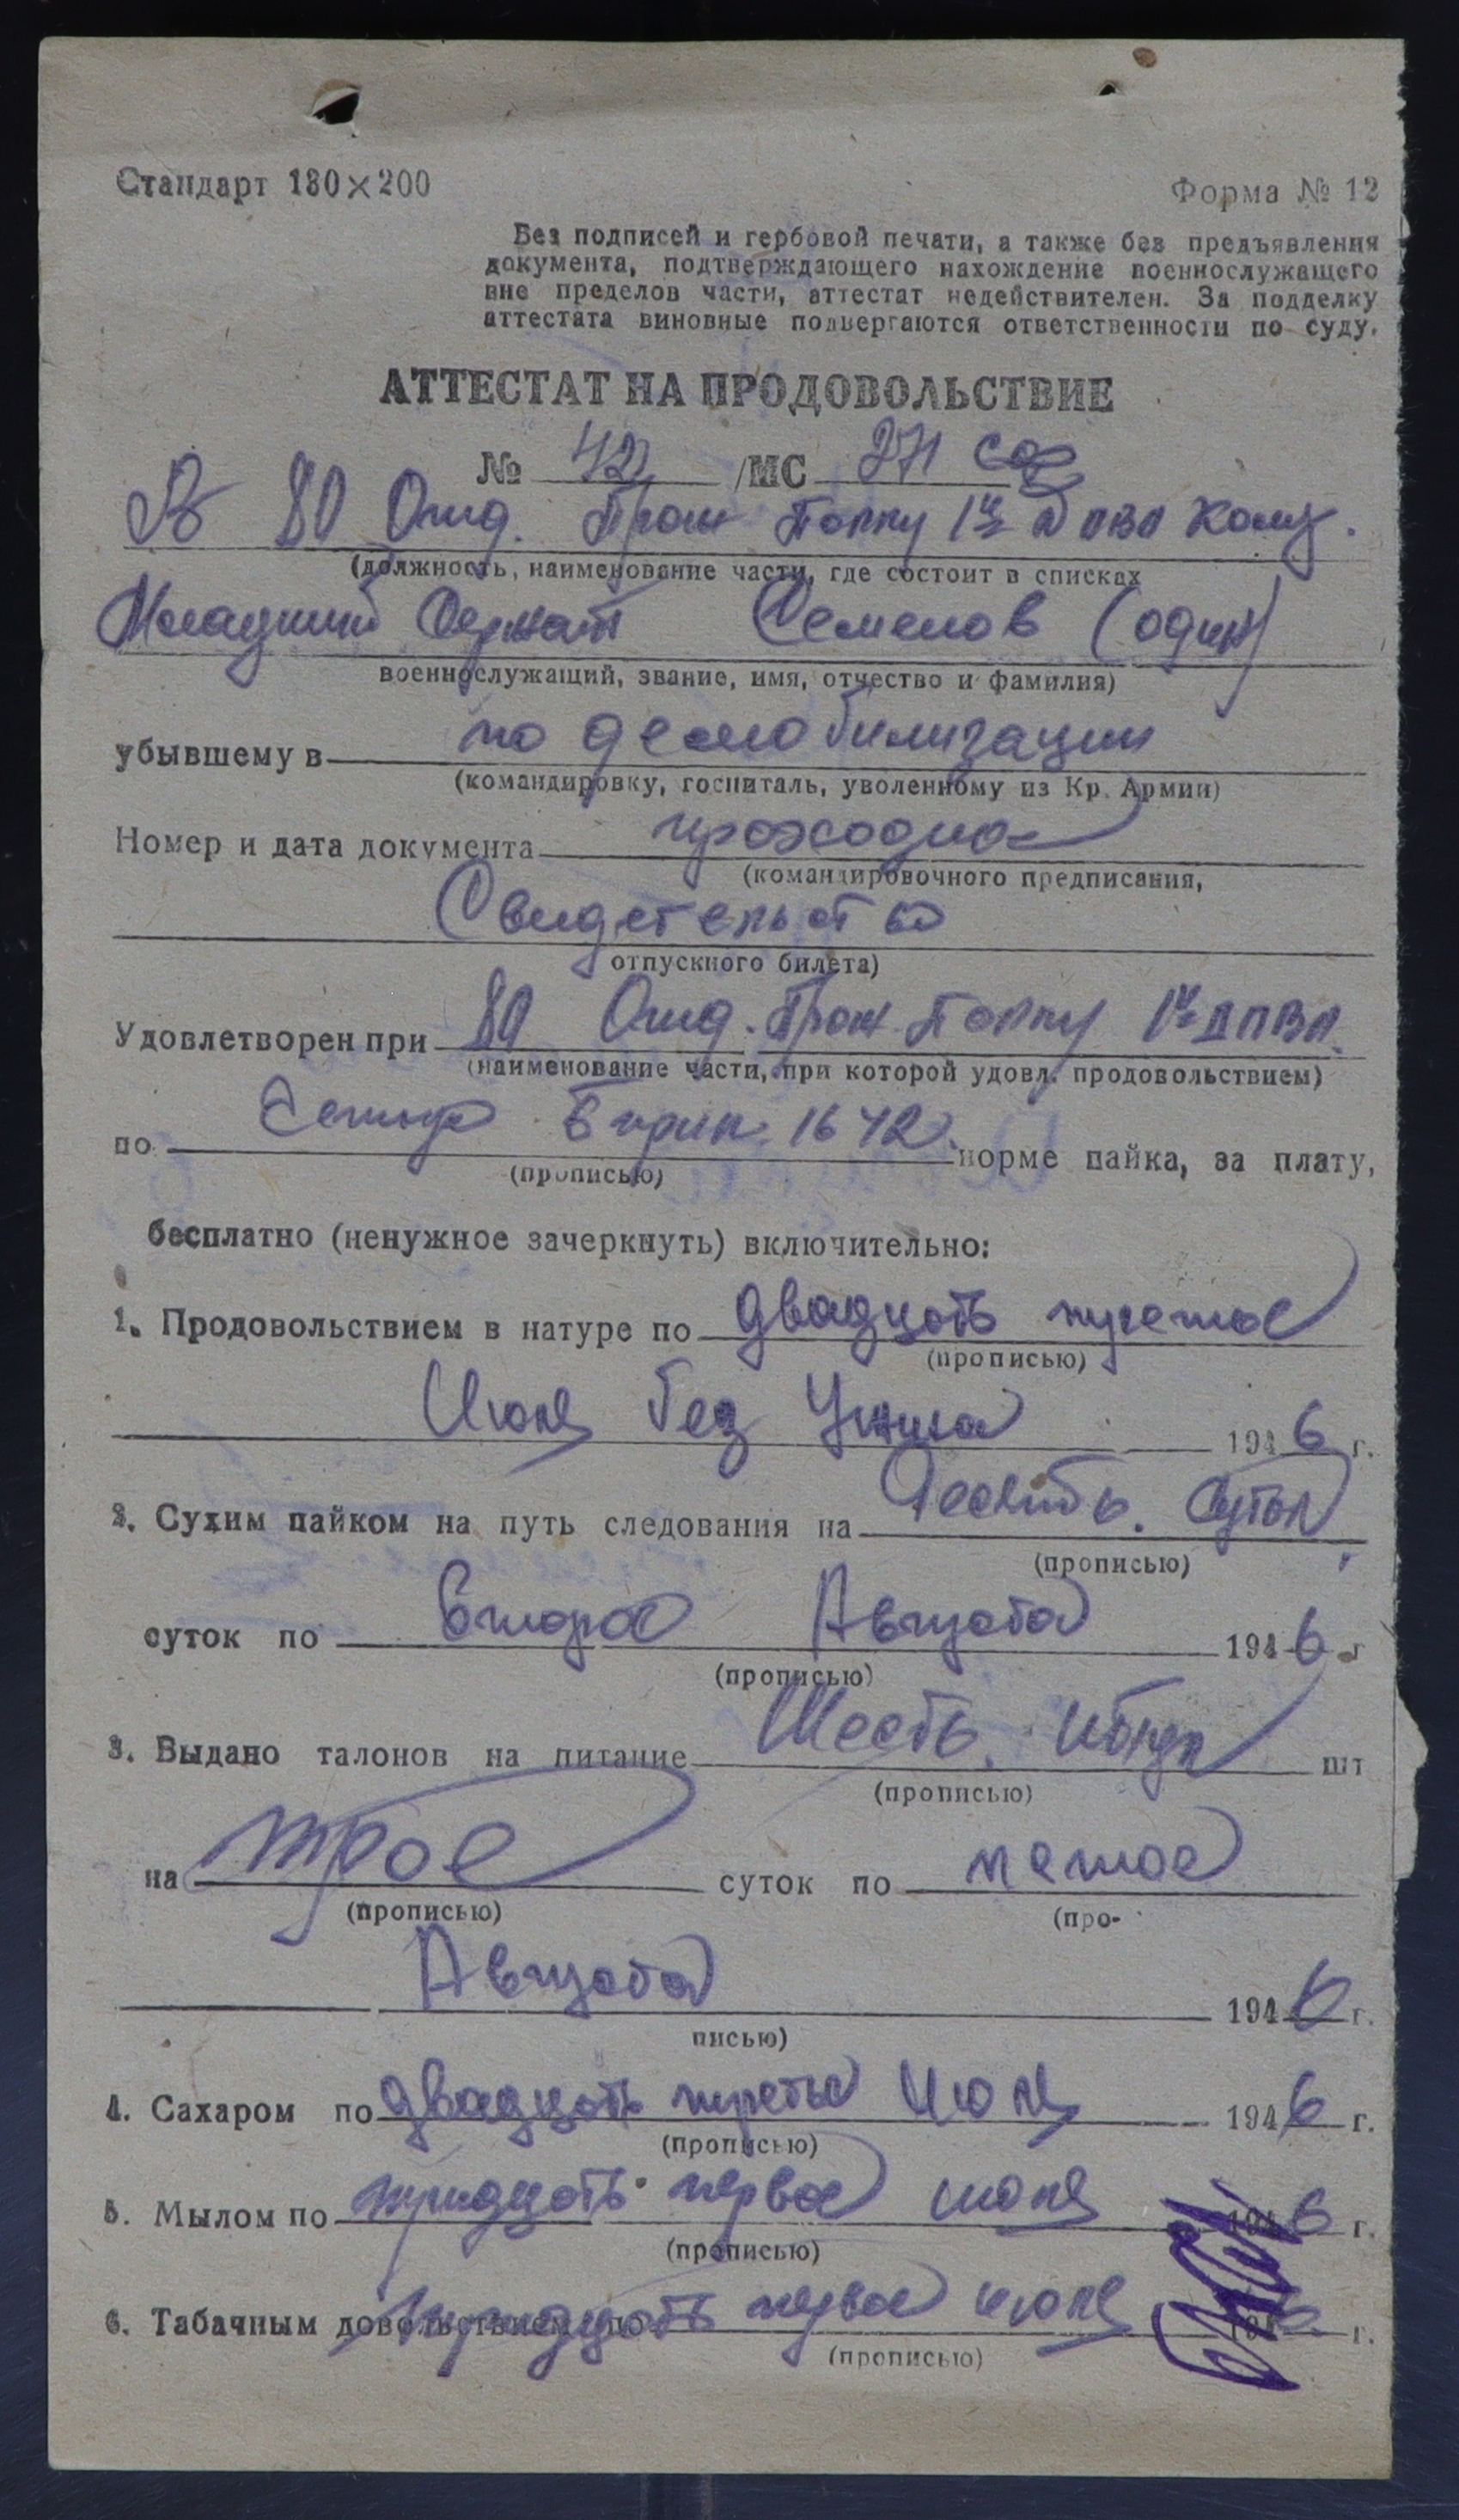 Стандарт 130×200
Форма № 12
Без подписей и гербовой печати, а также без предъявления
документа, подтверждающего нахождение военнослужащего
вне пределов части, аттестат недействителен. За подделку
аттестата виновные подвергаются ответственности по суду.
АТТЕСТАТ НА ПРОДОВОЛЬСТВИЕ
№ 42 /МС
В 80 Отд. Прож Полку 1й
(должность, наименование части, где состоит в списках
Младший Сержант Семенов (один)
военнослужащий, звание, имя, отчество и фамилия)
убывшему в по демобилизации
(командировку, госпиталь, уволенному из Кр. Армии)
Номер и дата документа проходное
(командировочного предписания,
Свидетельство
отпускного билета)
Удовлетворен при 80 Отд. Прож Полку 1й
(наименование части, при которой удовл. продовольствием)
по 1642 норме пайка, за плату,
(прописью)
бесплатно (ненужное зачеркнуть) включительно:
1. Продовольствием в натуре по двадцать третье
(прописью)
Июля без Ужина 1946 г.
2. Сухим пайком на путь следования на Десять суток
(прописью)
суток по второе Августа 1946 г
(прописью)
3. Выдано талонов на питание Шесть шт
(прописью)
на трое суток по пятое
(прописью) (про-
Августа 1946 г.
писью)
4. Сахаром по двадцать третье Июля 1946 г.
(прописью)
5. Мылом по тридцать первое июля 1946 г.
(прописью)
6. Табачным довольствием по тридцать первое июля 1946 г.
(прописью)